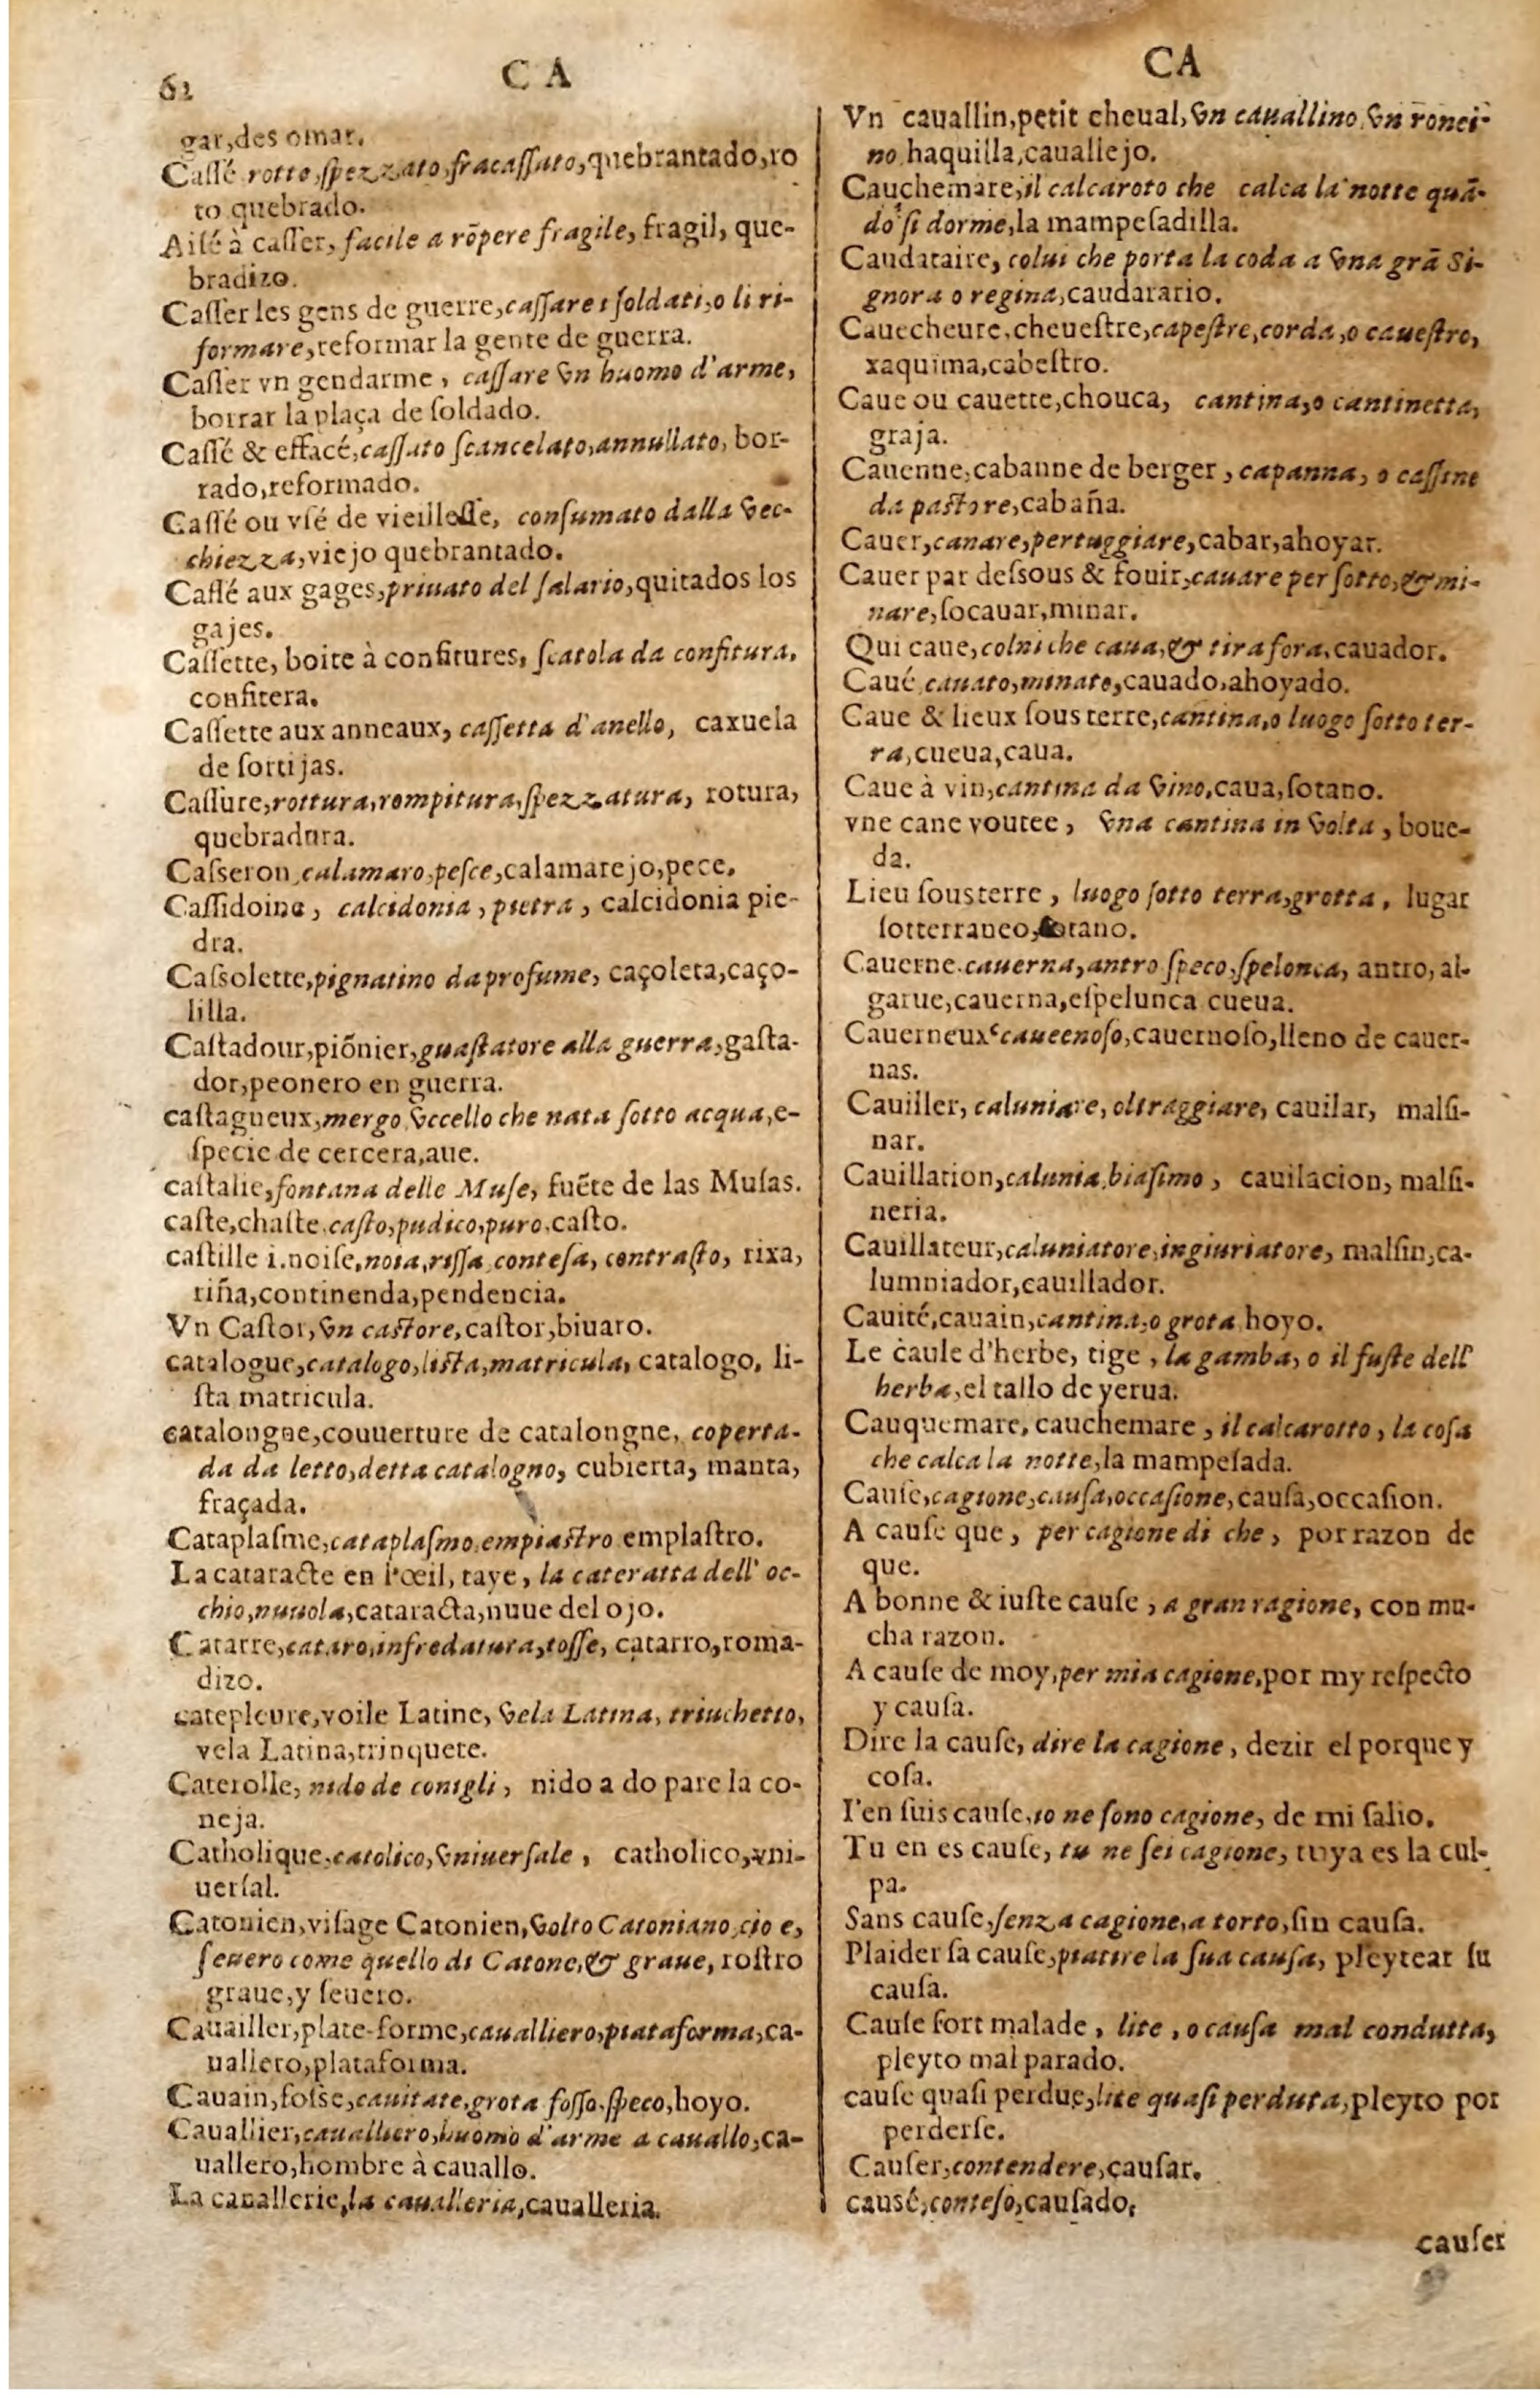 62
C A
gar,des omar.
Caſſé rotto,ſpezzato,fracaſſato,quebrantado,ro
to quebrado.
Aiſé à caſſer, facile a rōpere fragile, fragil, que-
bradizo.
Caſſer les gens de guerre,caſſare i ſoldati,o li ri-
formare,reformar la gente de guerra.
Caſſer vn gendarme, caſſare vn huomo d'arme,
borrar la plaça de ſoldado.
Caſſé & effacé,caſſato ſcancelato,annullato, bor-
rado,reformado.
Caſſé ou vſé de vieilleſſe, conſumato dalla vec-
chiezza,viejo quebrantado.
Caſſé aux gages,priuato del ſalario,quitados los
gajes.
Caſſette, boite à confitures, ſcatola da confitura,
confitera.
Caſſette aux anneaux, caſſetta d'anello, caxuela
de ſortijas.
Caſſure,rottura,rompitura,ſpezzatura, rotura,
quebradura.
Caſseron,calamaro,peſce,calamarejo,pece.
Caſſidoine, calcidonia, pietra, calcidonia pie-
dra.
Caſsolette,pignatino da profume, caçoleta,caço-
lilla.
Caſtadour,piōnier,guaſtatore alla guerra,gaſta-
dor,peonero en guerra.
caſtagueux,mergo vccello che nata ſotto acqua,e-
ſpecie de cercera,aue.
caſtalie,fontana delle Muſe, fuēte de las Muſas.
caſte,chaſte.caſto,pudico,puro.caſto.
caſtille i.noiſe,noia,riſſa,conteſa, contraſto, rixa,
riña,continenda,pendencia.
Vn Caſtor,vn caſtore,caſtor,biuaro.
catalogue,catalogo,liſta,matricula, catalogo, li-
ſta matricula.
catalongne,couuerture de catalongne, coperta-
da da letto,detta catalogno, cubierta, manta,
fraçada.
Cataplaſme,cataplaſmo,empiaſtro emplaſtro.
La cataracte en l'œil, taye, la cateratta dell' oc-
chio,nuuola,cataracta,nuue del ojo.
Catarre,cataro,infredatura,toſſe, catarro,roma-
dizo.
catepleure,voile Latine, vela Latina, triuchetto,
vela Latina,trinquete.
Caterolle, nido de conigli, nido a do pare la co-
neja.
Catholique,catolico,vniuerſale, catholico,vni-
uerſal.
Catonien,viſage Catonien,volto Catoniano,cio e,
ſeuero come quello di Catone,& graue, roſtro
graue,y ſeuero.
Cauailler,plate-forme,caualliero,piataforma,ca-
uallero,plataforma.
Cauain,foſse,cauitate,grota foſſo,ſpeco,hoyo.
Cauallier,caualliero,huomo d'arme a cauallo,ca-
uallero,hombre à cauallo.
La cauallerie,la caualleria,caualleria.
CA
Vn cauallin,petit cheual,vn cauallino,vn ronci-
no.haquilla,cauallejo.
Cauchemare,il calcaroto che calca la notte quā-
do ſi dorme,la mampeſadilla.
Caudataire, colui che porta la coda a vna grā Si-
gnora o regina,caudarario.
Cauecheure,cheueſtre,capeſtre,corda,o caueſtro,
xaquima,cabeſtro.
Caue ou cauette,chouca, cantina,o cantinetta,
graja.
Cauenne,cabanne de berger, capanna, o caſſine
da paſtore,cabaña.
Cauer,canare,pertuggiare,cabar,ahoyar.
Cauer par deſsous & fouir,cauare per ſotto,& mi-
nare,ſocauar,minar.
Qui caue,colni che caua,& tira fora,cauador.
Caué,cauato,minato,cauado,ahoyado.
Caue & lieux ſous terre,cantina,o luogo ſotto ter-
ra,cueua,caua.
Caue à vin,cantina da vino,caua,ſotano.
vne cane voutee, vna cantina in volta, boue-
da.
Lieu ſousterre, luogo ſotto terra,grotta, lugar
ſotterraneo,ſotano.
Cauerne.cauerna,antro ſpeco,ſpelonca, antro, al-
garue,cauerna,eſpelunca cueua.
Cauerneux caueenoſo,cauernoſo,lleno de cauer-
nas.
Cauiller, caluniare, oltraggiare, cauilar, malſi-
nar.
Cauillation,calunia,biaſimo, cauilacion, malſi-
neria.
Cauillateur,caluniatore,ingiuriatore, malſin,ca-
lumniador,cauillador.
Cauité,cauain,cantina,o grota hoyo.
Le caule d'herbe, tige, la gamba, o il fuſte dell'
herba,el tallo de yerua.
Cauquemare, cauchemare, il calcarotto, la coſa
che calca la notte,la mampeſada.
Cauſe,cagione,cauſa,occaſione,cauſa,occaſion.
A cauſe que, per cagione di che, por razon de
que.
A bonne & iuſte cauſe, a gran ragione, con mu-
cha razon.
A cauſe de moy,per mia cagione,por my reſpecto
y cauſa.
Dire la cauſe, dire la cagione, dezir el porque y
coſa.
I'en ſuis cauſe,io ne ſono cagione, de mi ſalio.
Tu en es cauſe, tu ne ſei cagione, tuya es la cul-
pa.
Sans cauſe,ſenza cagione,a torto,ſin cauſa.
Plaider ſa cauſe,piatire la ſua cauſa, pleytear ſu
cauſa.
Cauſe fort malade, lite, o cauſa mal condutta,
pleyto mal parado.
cauſe quaſi perdue,lite quaſi perduta,pleyto por
perderſe.
Cauſer,contendere,cauſar.
causé,conteſo,cauſado,
cauſer